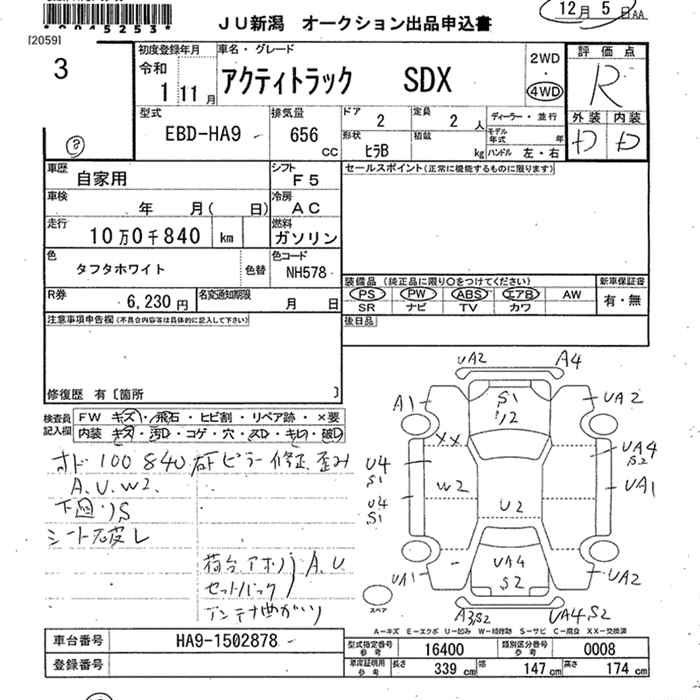 00045253
[2059]
JU新潟 オークション出品申込書
12月 5日 AA
3
初度登録年月
令和
1 11月
車名・グレード
アクティトラック SDX
2WD
・
4WD
評価点
R
型式
EBD-HA9
排気量
656
CC
ドア
2
定員
2 人
形状
ヒラB
積載
kg
ディーラー・並行
モデル年式 年
ハンドル 左・右
外装 内装
D D
車歴
自家用
シフト
F5
車検
年 月( 日)
冷房
AC
走行
10万0千840 km
燃料
ガソリン
色
タフタホワイト
色替
色コード
NH578
R券
6,230円
名変通知期限
月 日
セールスポイント(正常に機能するものに限ります)
装備品(純正品に限り○をつけてください)
PS PW ABS エアB AW
SR ナビ TV カワ
新車保証書
有・無
後日品
注意事項申告欄(不具合内容等は具体的に記入して下さい)
修復歴 有〔箇所 〕
検査員記入欄
FW キズ・飛石・ヒビ割・リペア跡・×要
内装 キズ・汚D・コゲ・穴・スD・キレ・破D
オド100840 右Fピラー修正、歪み
A.U.W2.
下回りS
シート皮皮レ
荷台アオリ A.U
セットバック
アンテナ曲がり
UA2 A4
A1 S1 UA2
12
XX
U4 S1 UA4 S2
W2 UA1
U4 S1 U2
UA4
UA1 S2 UA2
スペア
A3,S2 UA4,S2
A—キズ E—エクボ U—凹み W—補修跡 S—サビ C—腐食 XX—交換済
車台番号
HA9-1502878
登録番号
型式指定番号 参考
16400
類別区分番号 参考
0008
車庫証明用 参考
長さ 339 cm 幅 147 cm 高さ 174 cm